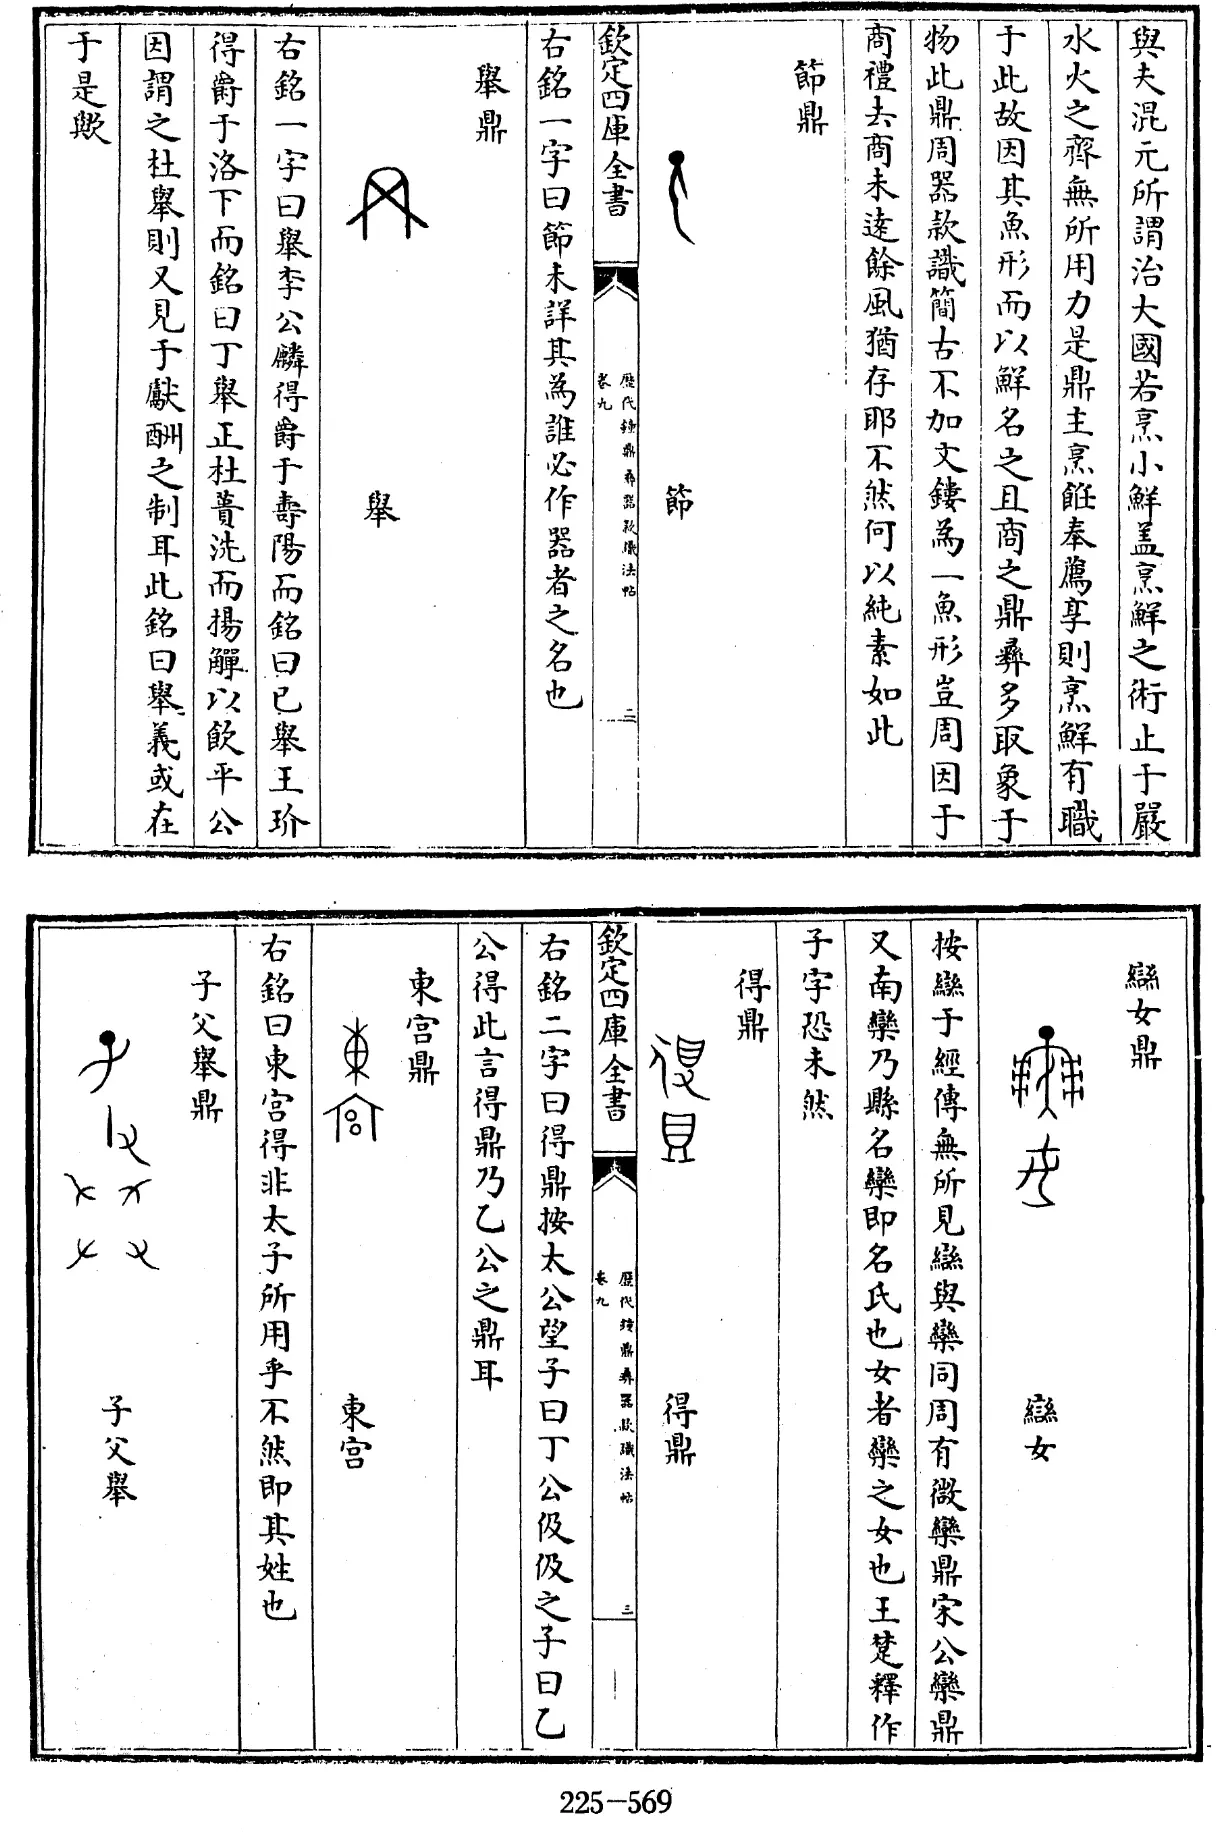 與夫混元所謂治大國若烹小鮮盖烹鮮之術止于嚴
水火之齊無所用力是鼎主烹飪奉薦享則烹鮮有職
于此故因其魚形而以鮮名之且商之鼎彞多取象于
物此鼎周器款識簡古不加文鏤為一魚形豈周因于
商禮去商未逺餘風猶存耶不然何以純素如此
節鼎
節
欽定四庫全書
歷代鐘鼎彞器款識法帖
卷九
二
右銘一字曰節未詳其為誰必作器者之名也
舉鼎
舉
右銘一字曰舉李公麟得爵于壽陽而銘曰已舉王玠
得爵于洛下而銘曰丁舉正杜蕢洗而揚觶以飲平公
因謂之杜舉則又見于獻酬之制耳此銘曰舉義或在
于是歟
䜌女鼎
䜌女
按䜌于經傳無所見䜌與欒同周有㣲欒鼎宋公欒鼎
又南欒乃縣名欒即名氏也女者欒之女也王楚釋作
子字恐未然
得鼎
得鼎
欽定四庫全書
歷代鐘鼎彞器款識法帖
卷九
三
右銘二字曰得鼎按太公望子曰丁公伋伋之子曰乙
公得此言得鼎乃乙公之鼎耳
東宫鼎
東宫
右銘曰東宫得非太子所用乎不然即其姓也
子父舉鼎
子父舉
225-569